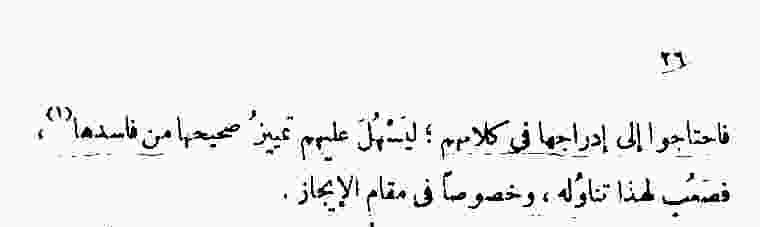 ٢٦
فاحتاجوا إلى إدراجها في كلامهم ؛ ليَسْهُلَ عليهم تمييزُ صحيحها من فاسدها(١) ،
فصَعُب لهذا تناوُله ، وخصوصاً فى مقام الإيجاز .